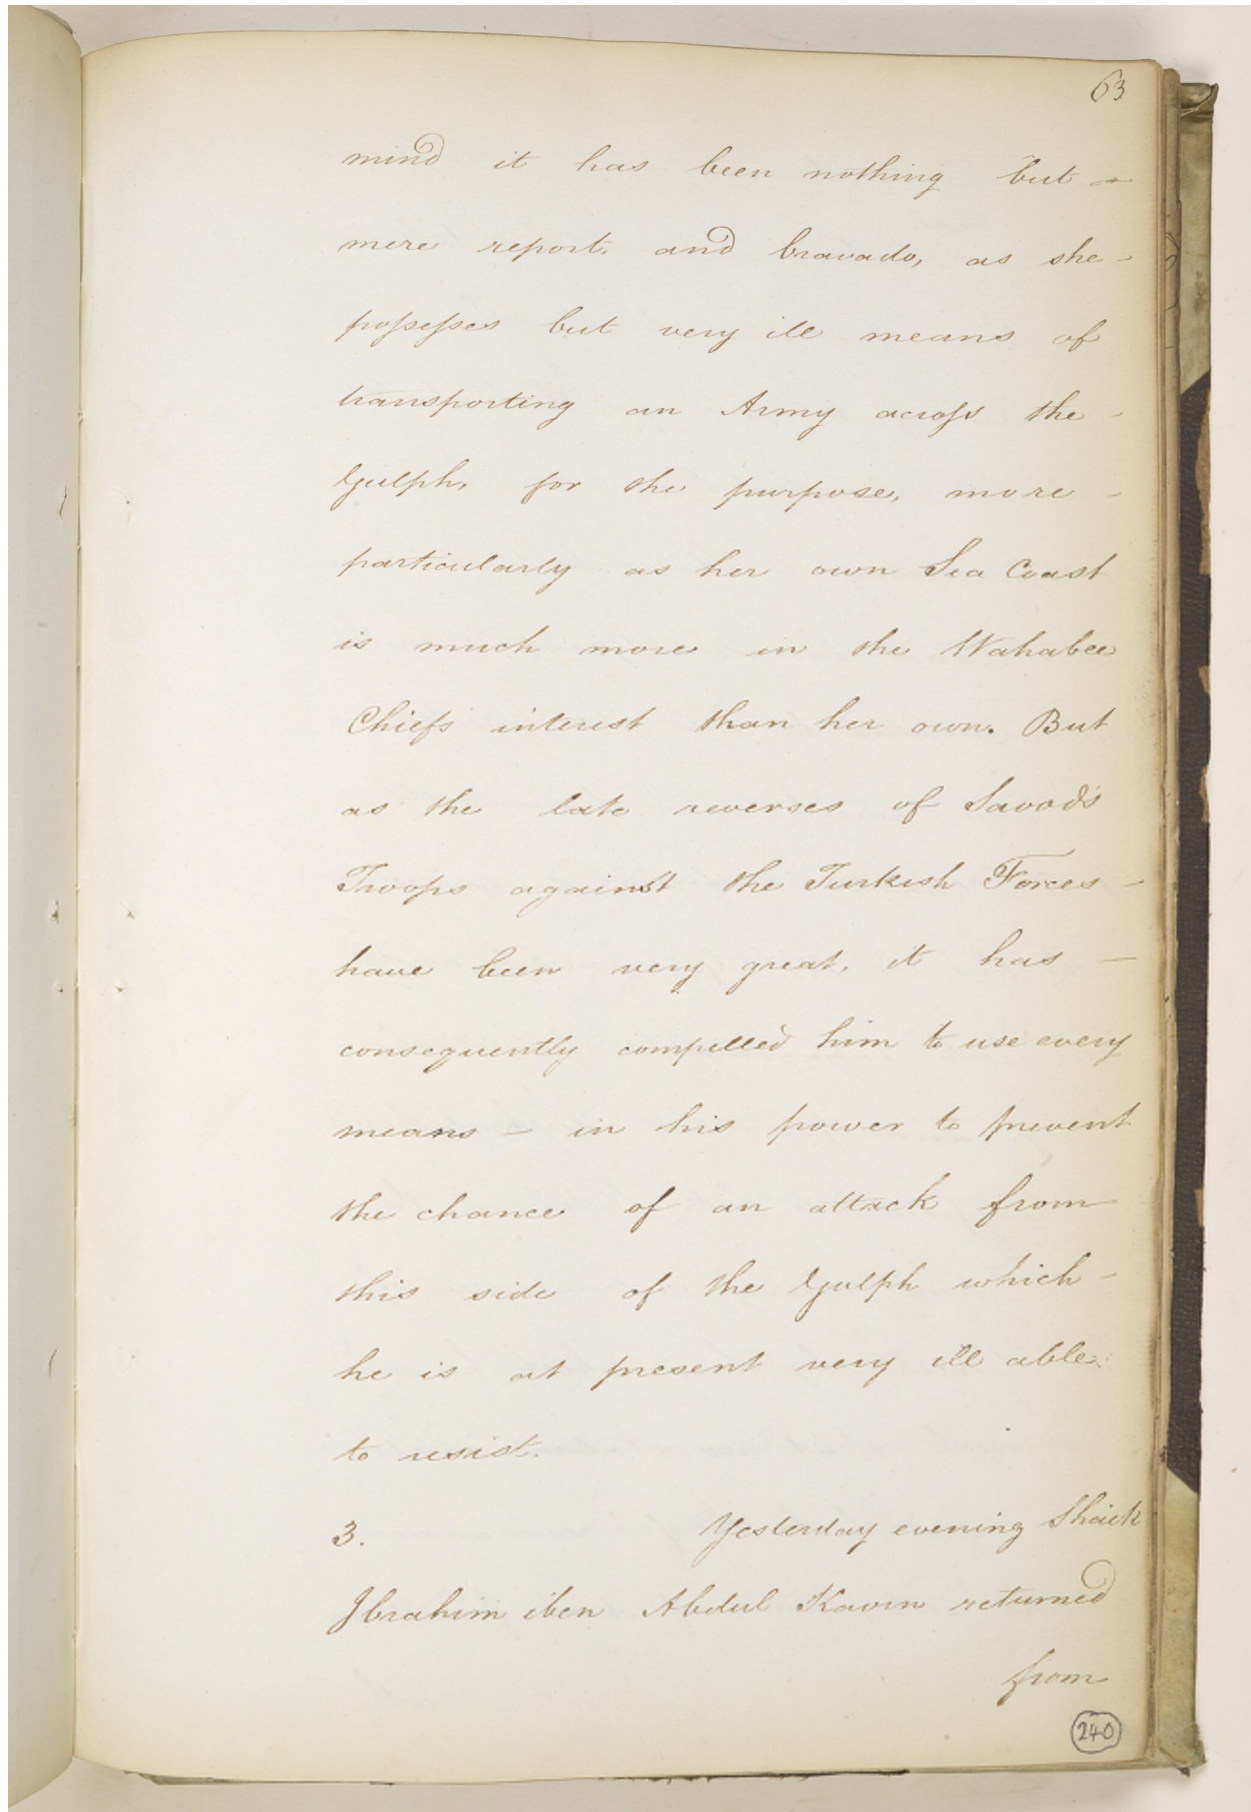 63
mind it has been nothing but -
mere report, and bravado, as she -
possesses but very ill means of
transporting an Army across the -
Gulph, for the purpose, more -
particularly as her own Sea Coast
is much more in the Wahabee
Chiefs interest than her own. But
as the late reverses of Saood's
Troops against the Turkish Forces -
have been very great, it has -
consequently compelled him to use every
means - in his power to prevent
the chance of an attack from
this side of the Gulph which -
he is at present very ill able
to resist.
3. Yesterday evening Shaik
Ibrahim iben Abdul Kavim returned
from
240